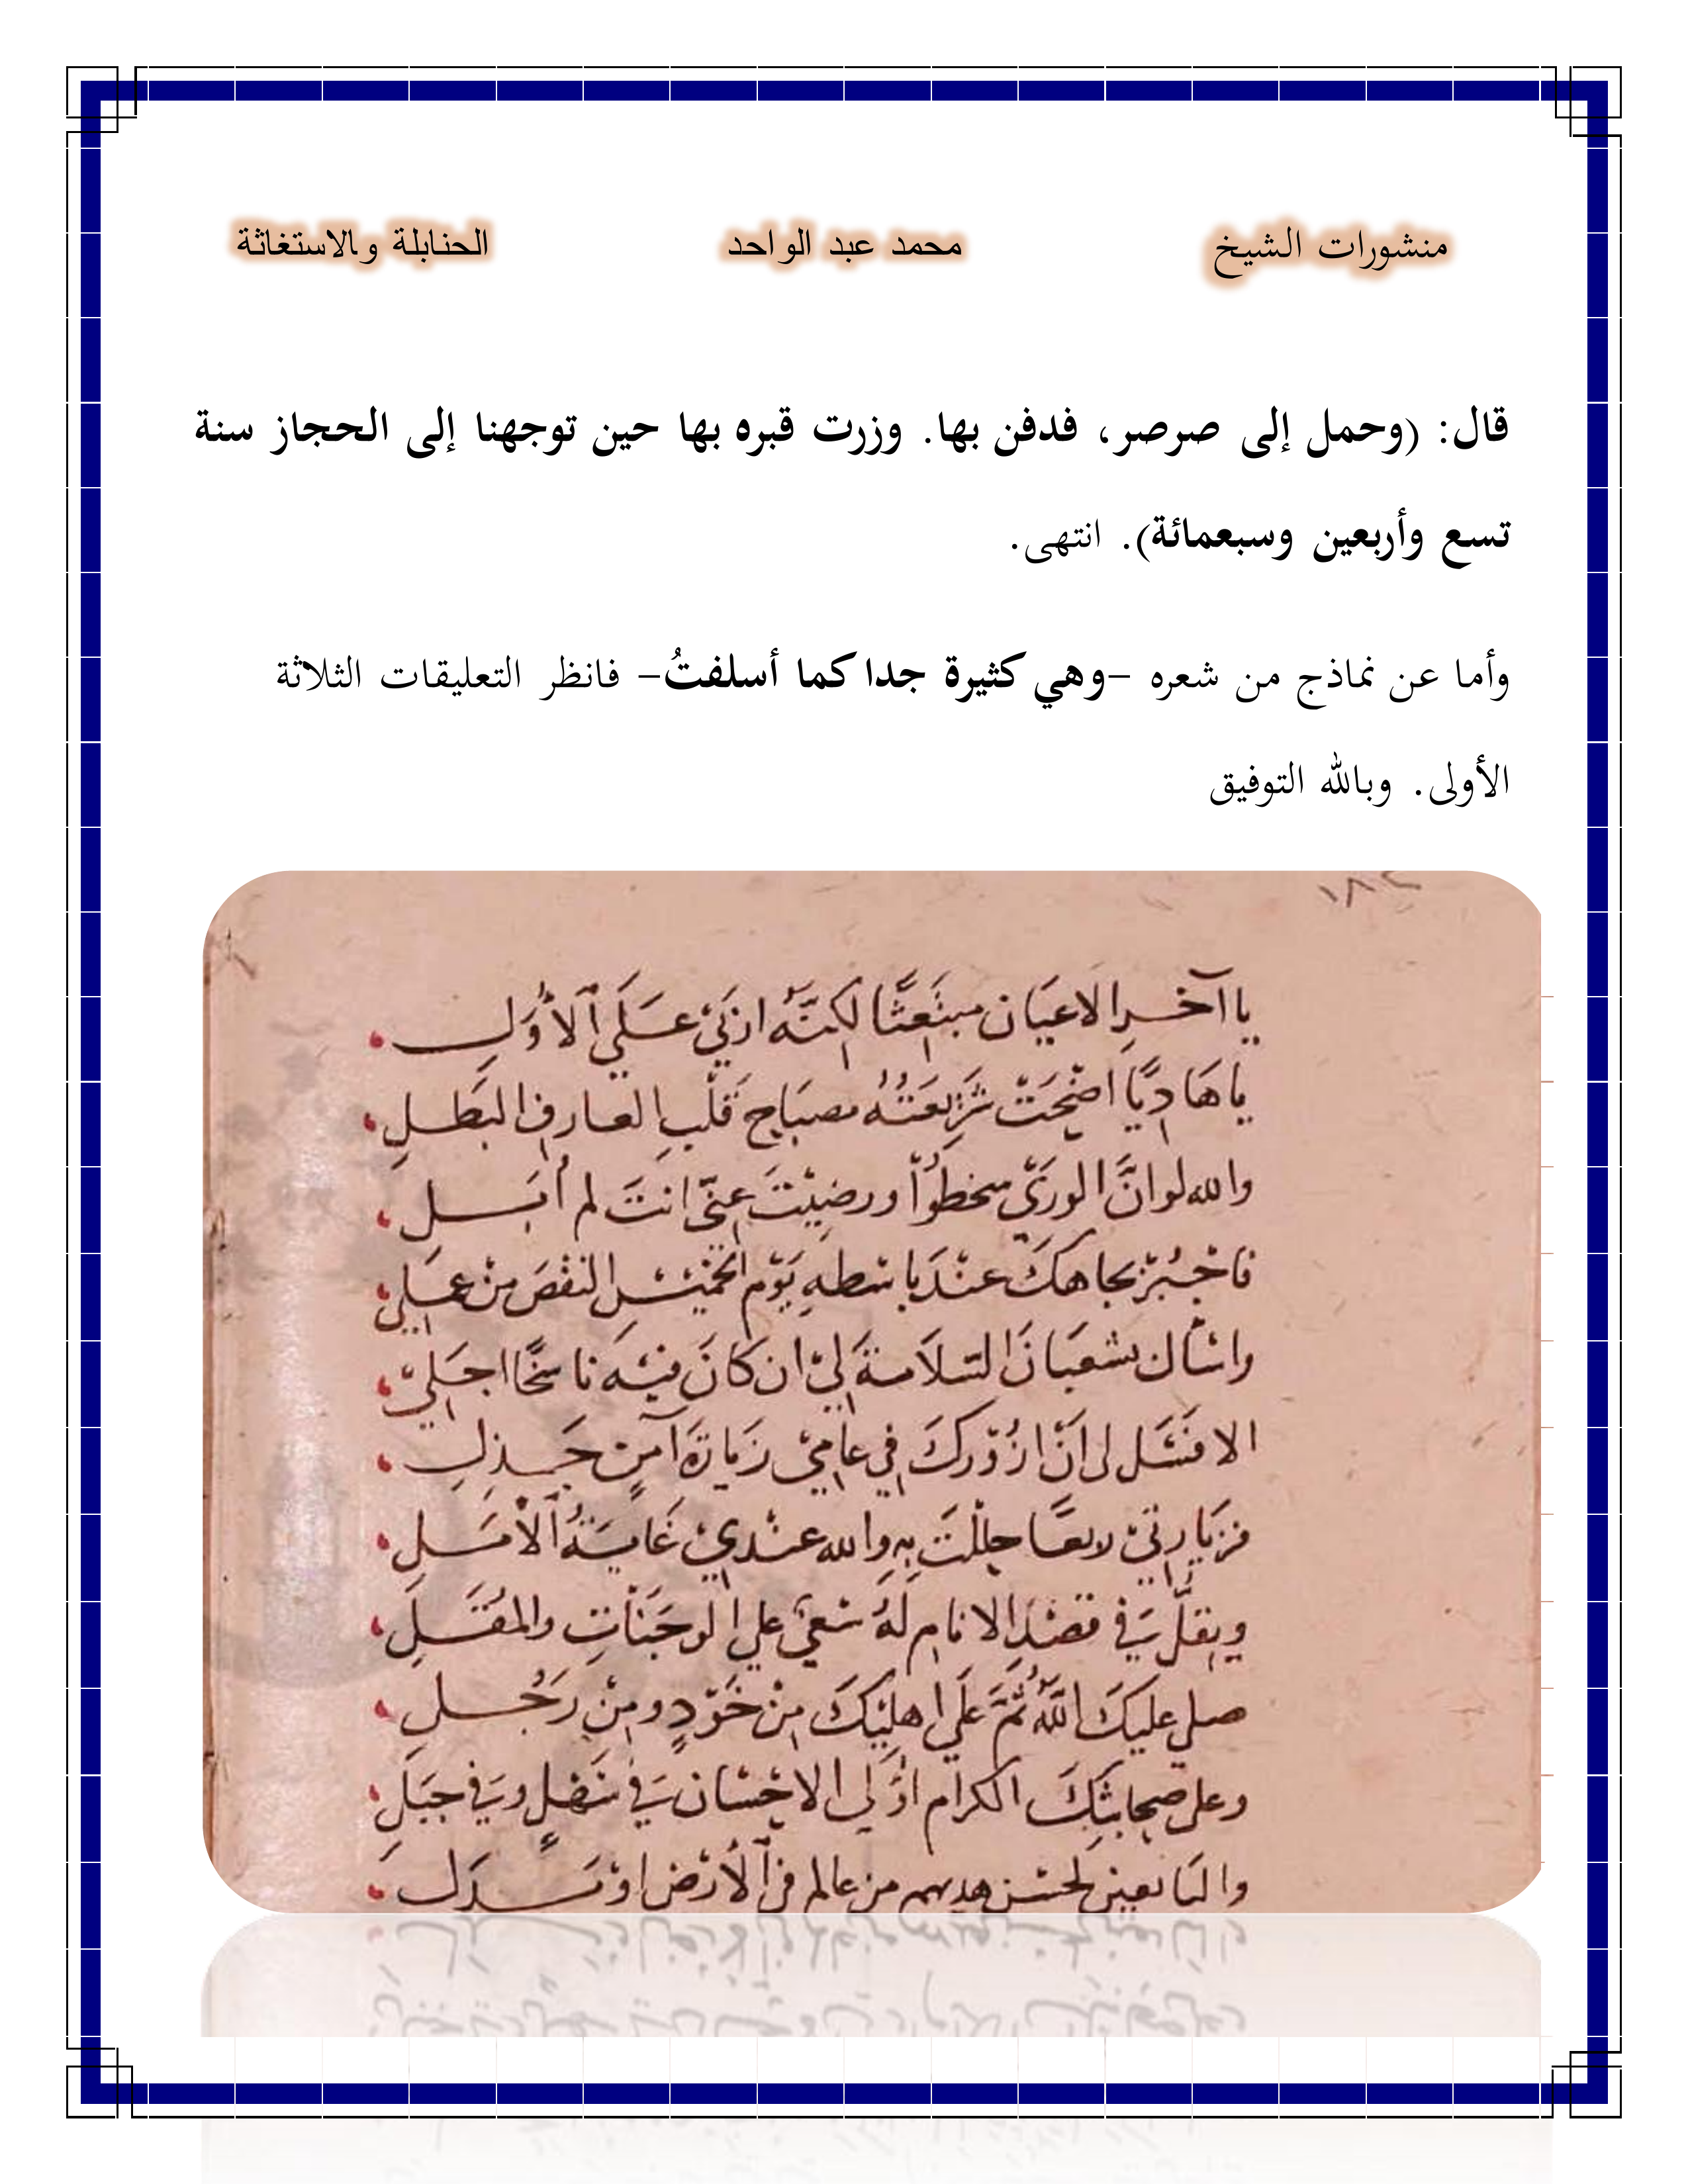 منشورات الشيخ محمد عبد الواحد الحنابلة والاستغاثة
قال: (وحمل إلى صرصر، فدفن بها. وزرت قبره بها حين توجهنا إلى الحجاز سنة
تسع وأربعين وسبعمائة). انتهى.
وأما عن نماذج من شعره -وهي كثيرة جدا كما أسلفتُ- فانظر التعليقات الثلاثة
الأولى. وبالله التوفيق
يا آخر الاعيَان مبتَعثًا لكنّه ازكى عَلَى الأوَّلِ
يا هَادِيًا اضْحَتْ شَرِيعَتُهُ مصبَاح قَلْبِ العارف البَطلِ
والله لو انَّ الورَى سخطوُا ورضِيْتَ عنّى انتَ لم أُبَلِ
فاجْبُرْ بجاهكَ عنْدَ باسطهِ يَوْم الخمْيسِ النقْصَ منْ عملي
واسْأل بشعبَانَ السّلَامةَ لِيْ ان كَانَ فيْه ناسخًا اجَلِيْ
الا فسَل لى انْ ازُوْركَ في عامِيْ زيَارَةَ آمنٍ جَذِلِ
فزيَارتىْ ربعًا حللْتَ بهِ والله عنْدِيْ غَايَةُ الأمَلِ
ويقلّ في قصْدِ الانام لَهُ سَعْيٌ على الوجَنَاتِ والمُقَلِ
صلى عليكَ اللَّهُ ثمَّ عَلَى اهليْكَ منْ خَوْدٍ ومنْ رَجُلِ
وعلى صحابتكَ الكرام اوُلى الاحْسَان في سَهْلٍ وفي جبَلِ
والتابعين لحسْن هديهم من عالم في الأرْض اوْ بَدَل